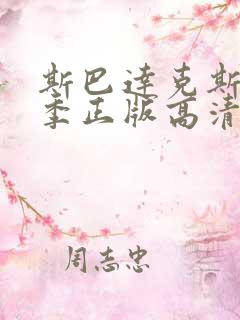 斯巴达克斯
季正版高清
周志忠